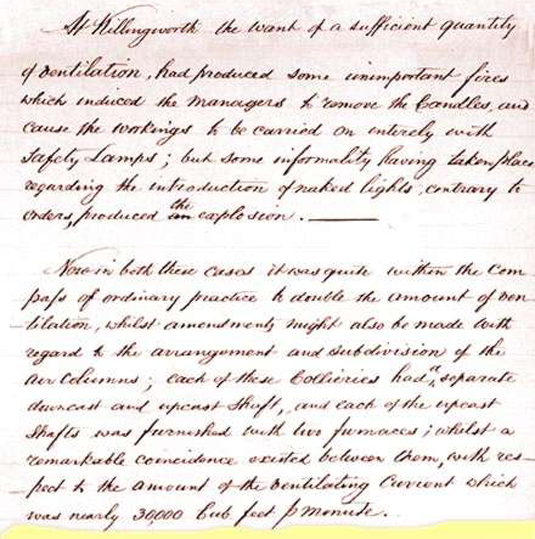 At Killingworth the want of a sufficient quantity
of ventilation, had produced some unimportant fires
which induced the managers to remove the Candles, and
cause the workings to be carried on entirely with
Safety Lamps; but some informality having taken place
regarding the introduction of naked lights, contrary to
orders, produced an the explosion.
Now in both these cases it was quite within the Com-
pass of ordinary practice to double the amount of ven-
tilation, whilst amendments might also be made with
regard to the arrangement and subdivision of the
air Columns; each of these Collieries had a separate
downcast and upcast shaft, and each of the upcast
Shafts was furnished with two furnaces; whilst a
remarkable coincidence existed between them, with res-
pect to the amount of the Ventilating Current which
was nearly 30,000 Cub. feet p minute.